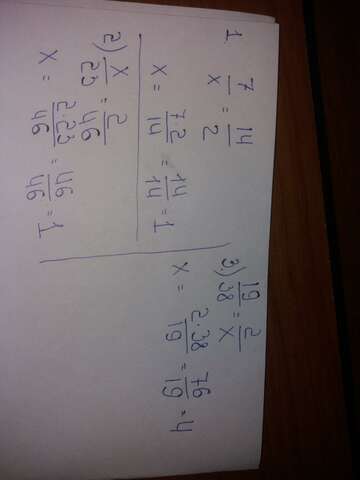 1.
7/x = 14/2
x = 7·2/14 = 14/14 = 1
2) x/23 = 2/46
x = 2·23/46 = 46/46 = 1
3.) 19/38 = 2/x
x = 2·38/19 = 76/19 = 4